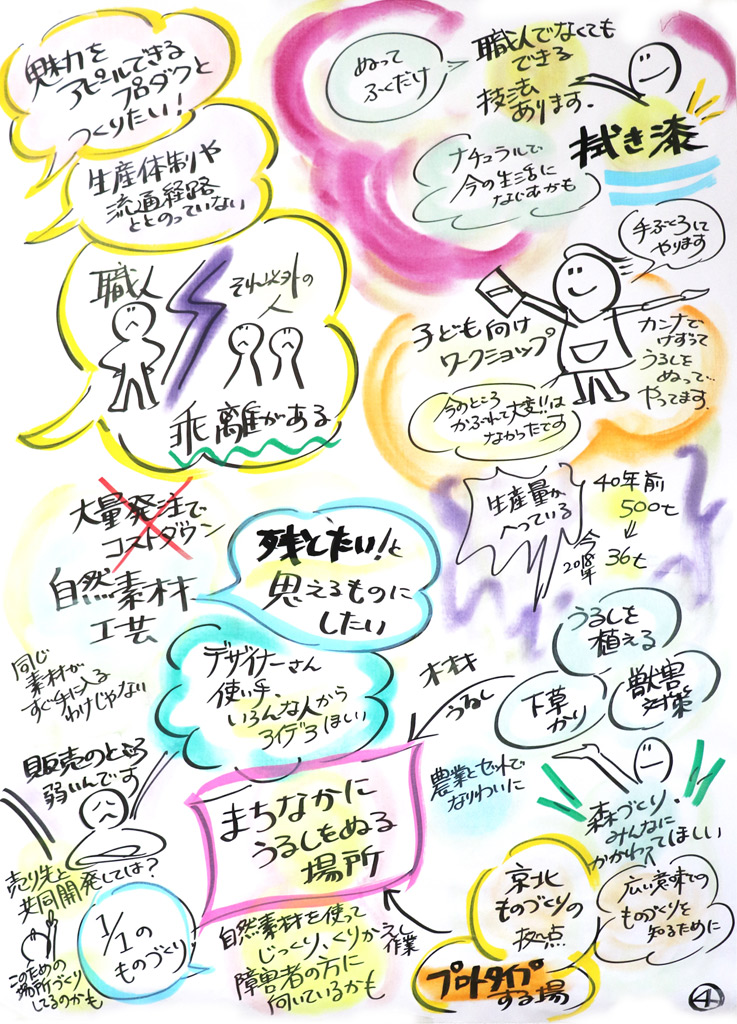 魅力を
アピールできる
プロダクト
つくりたい!
生産体制や
流通経路
ととのっていない
職人
それ以外の
人
乖離がある
ぬって
ふくだけ
職人でなくても
できる
技法
あります.
拭き漆
ナチュラルで
今の生活に
なじむかも
手ぶくろして
やります
子ども向け
ワークショップ
カンナで
けずって
うるしを
ぬって…
やってます.
今のところ
かぶれて大変!!は
なかったです
生産量が
へっている
40年前
500t
↓
今
2018年
36t
大量発注で
コストダウン
自然素材
工芸
残したい!と
思えるものに
したい
同じ
素材が
すぐ手に入る
わけじゃない
デザイナーさん
使い手、
いろんな人から
アイデアほしい
木材
うるし
うるしを
植える
下草
かり
獣害
対策
販売のところ
弱いんです
まちなかに
うるしをぬる
場所
農業とセットで
なりわいに
森づくり、
みんなに
かかわってほしい
売り先と
共同開発しては?
1/1の
ものづくり
このための
場所づくり
してるのかも
自然素材を使って
じっくり、くりかえし
作業
障害者の方に
向いているかも
京北
ものづくりの
拠点
プロトタイプ
する場
広い意味での
ものづくりを
知るために
4